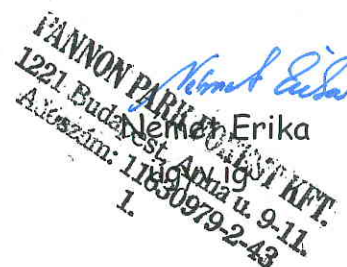 PANNON PARK FOREST KFT.
1221 Budapest, Anna u. 9-11.
Adószám: 11830979-2-43
1.
Német Erika
ügyv.ig